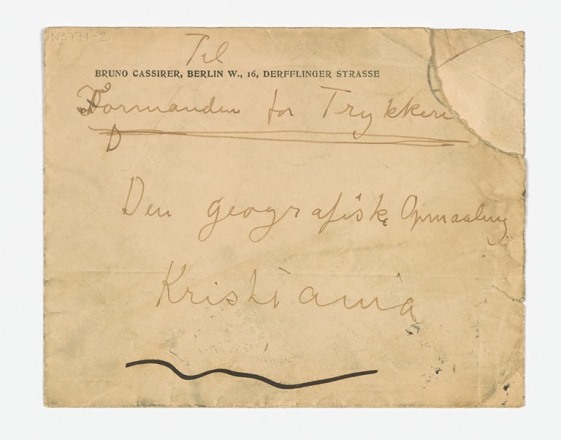 Til
BRUNO CASSIRER, BERLIN W., 16, DERFFLINGER STRASSE
Formanden for Trykkeri
Den geografiske Opmaaling
Kristiania